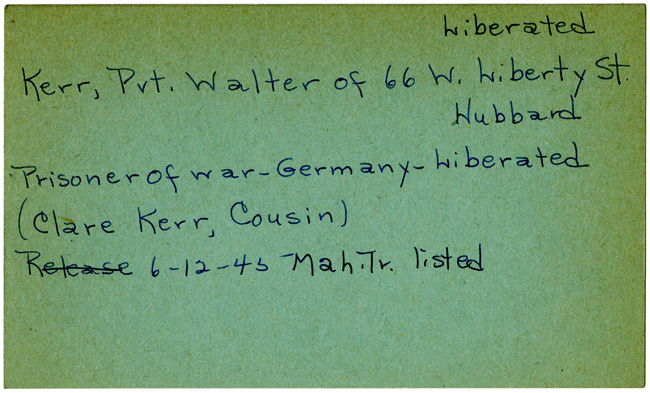 Liberated
Kerr, Pvt. Walter of 66 W. Liberty St.
Hubbard
Prisoner of war - Germany - Liberated
(Clare Kerr, Cousin)
Release 6-12-45 Mah. Tr. listed